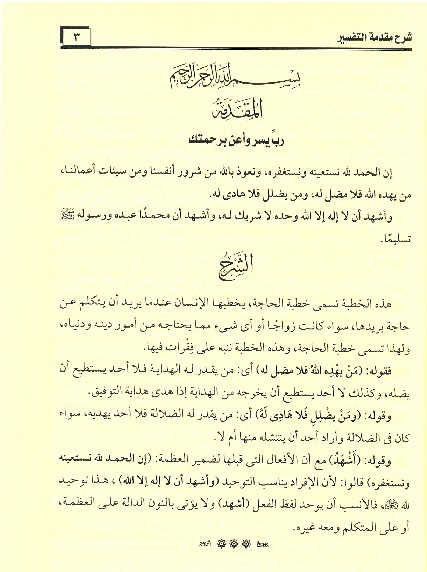 شرح مقدمة التفسير
٣
بسم الله الرحمن الرحيم
المقدمة
رب يسر وأعن برحمتك
إن الحمد لله نستعينه ونستغفره، ونعوذ بالله من شرور أنفسنا ومن سيئات أعمالنا،
من يهده الله فلا مضل له، ومن يضلل فلا هادى له.
وأشهد أن لا إله إلا الله وحده لا شريك له، وأشهد أن محمدًا عبده ورسوله ﷺ
تسليمًا.
الشرح
هذه الخطبة تسمى خطبة الحاجة، يخطبها الإنسان عندما يريد أن يتكلم عن
حاجة يريدها، سواء كانت زواجًا أو أى شىء مما يحتاجه من أمور دينه ودنياه،
ولهذا تسمى خطبة الحاجة، وهذه الخطبة ننبه على فِقْرات فيها.
فقوله: (مَنْ يَهْدِه اللهُ فلا مضل له) أى: من يقدر له الهداية فلا أحد يستطيع أن
يضله، وكذلك لا أحد يستطيع أن يخرجه من الهداية إذا هدى هداية التوفيق.
وقوله: (ومَنْ يضْلِل فَلا هَادِى لَهُ) أى: من يقدر له الضلالة فلا أحد يهديه، سواء
كان فى الضلالة وأراد أحد أن ينتشله منها أم لا.
وقوله: (أَشْهَدُ) مع أن الأفعال التى قبلها لضمير العظمة: (إن الحمد لله نستعينه
ونستغفره) قالوا: لأن الإفراد يناسب التوحيد (وأشهد أن لا إله إلا الله)، هذا توحيد
لله ﷻ، فالأنسب أن يوحد لفظ الفعل (أشهد) ولا يؤتى بالنون الدالة على العظمة،
أو على المتكلم ومعه غيره.